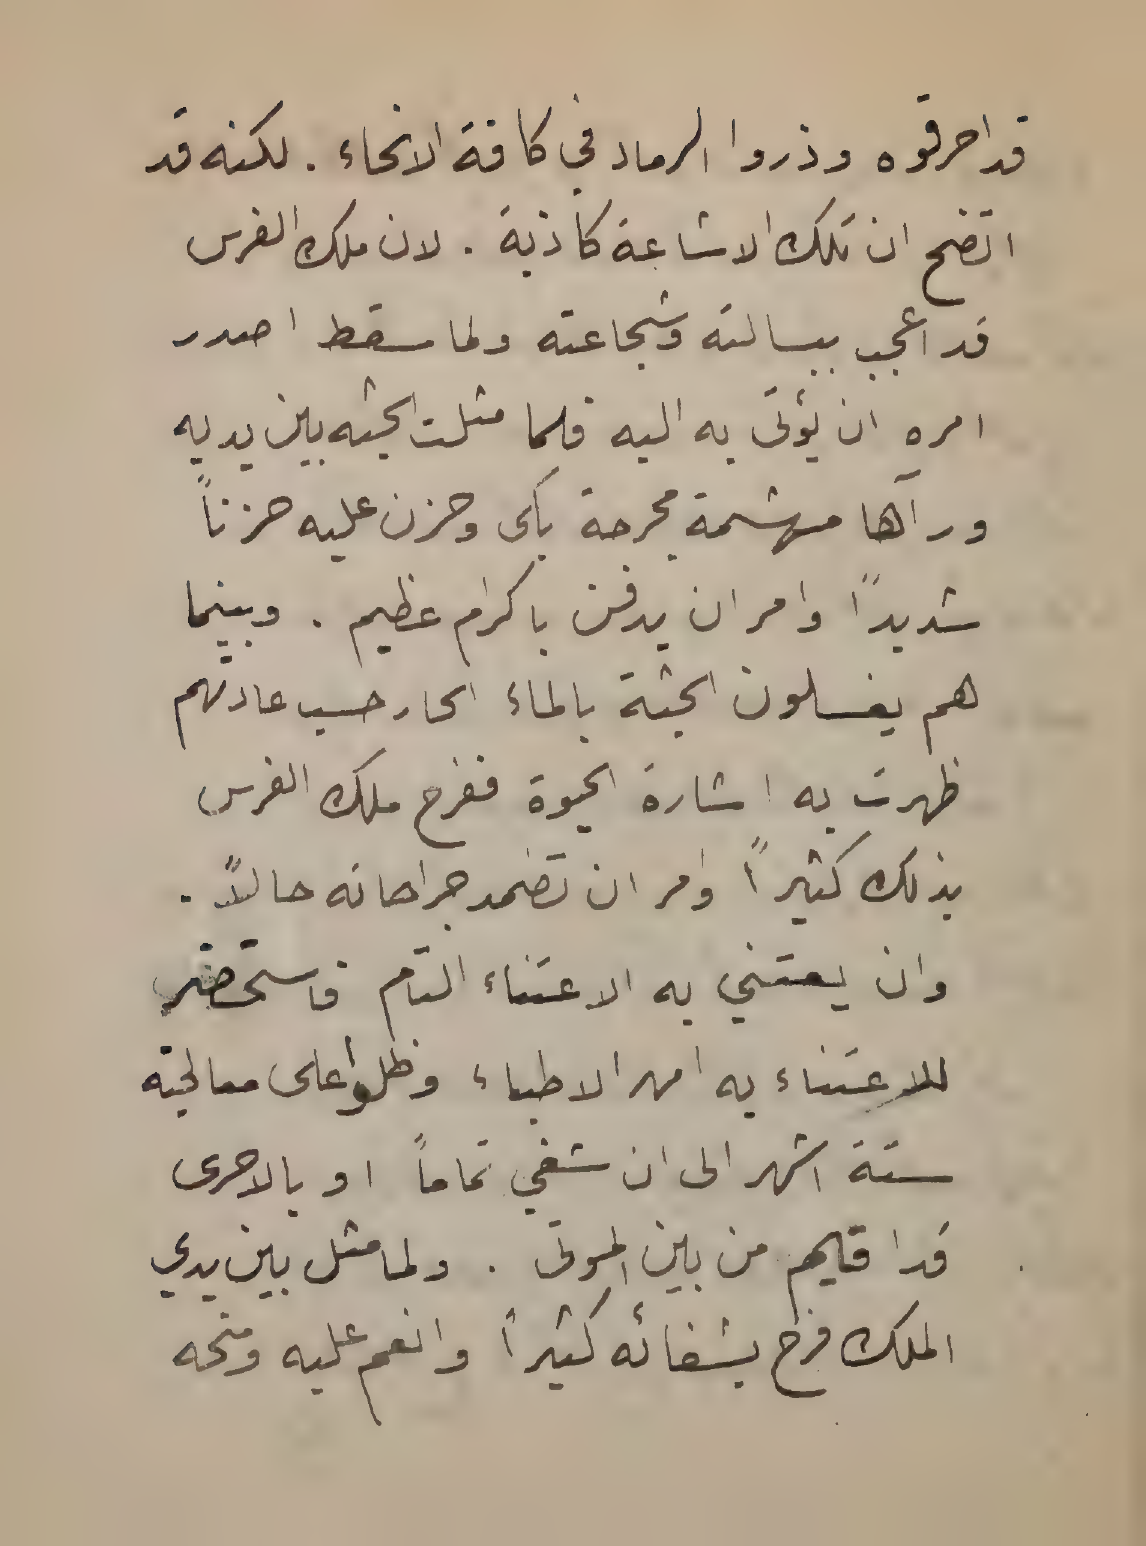 قد احرقوه وذروا الرماد في كافة الانحاء . لكنه قد
اتضح ان تلك الاشاعة كاذبة . لان ملك الفرس
قد اعجب ببسالته وشجاعته ولما سقط اصدر
امره ان يؤتى به اليه فلما مثلت الجثه بين يديه
ورآها مهشمة مجرحة بكى وحزن عليه حزناً
شديداً وامر ان يدفن باكرام عظيم . وبينما
هم يغسلون الجثة بالماء الحار حسب عادتهم
ظهرت به اشارة الحيوة ففرح ملك الفرس
بذلك كثيراً وامر ان تضمد جراحاته حالاً .
وان يعتني به الاعتناء التام فاستحضر
للاعتناء به امهر الاطباء وظلوا على معالجته
ستة اشهر الى ان شفي تماماً او بالاحرى
قد اقيم من بين الموتى . ولما مثل بين يدي
الملك فرح بشفائه كثيراً وانعم عليه ومنحه